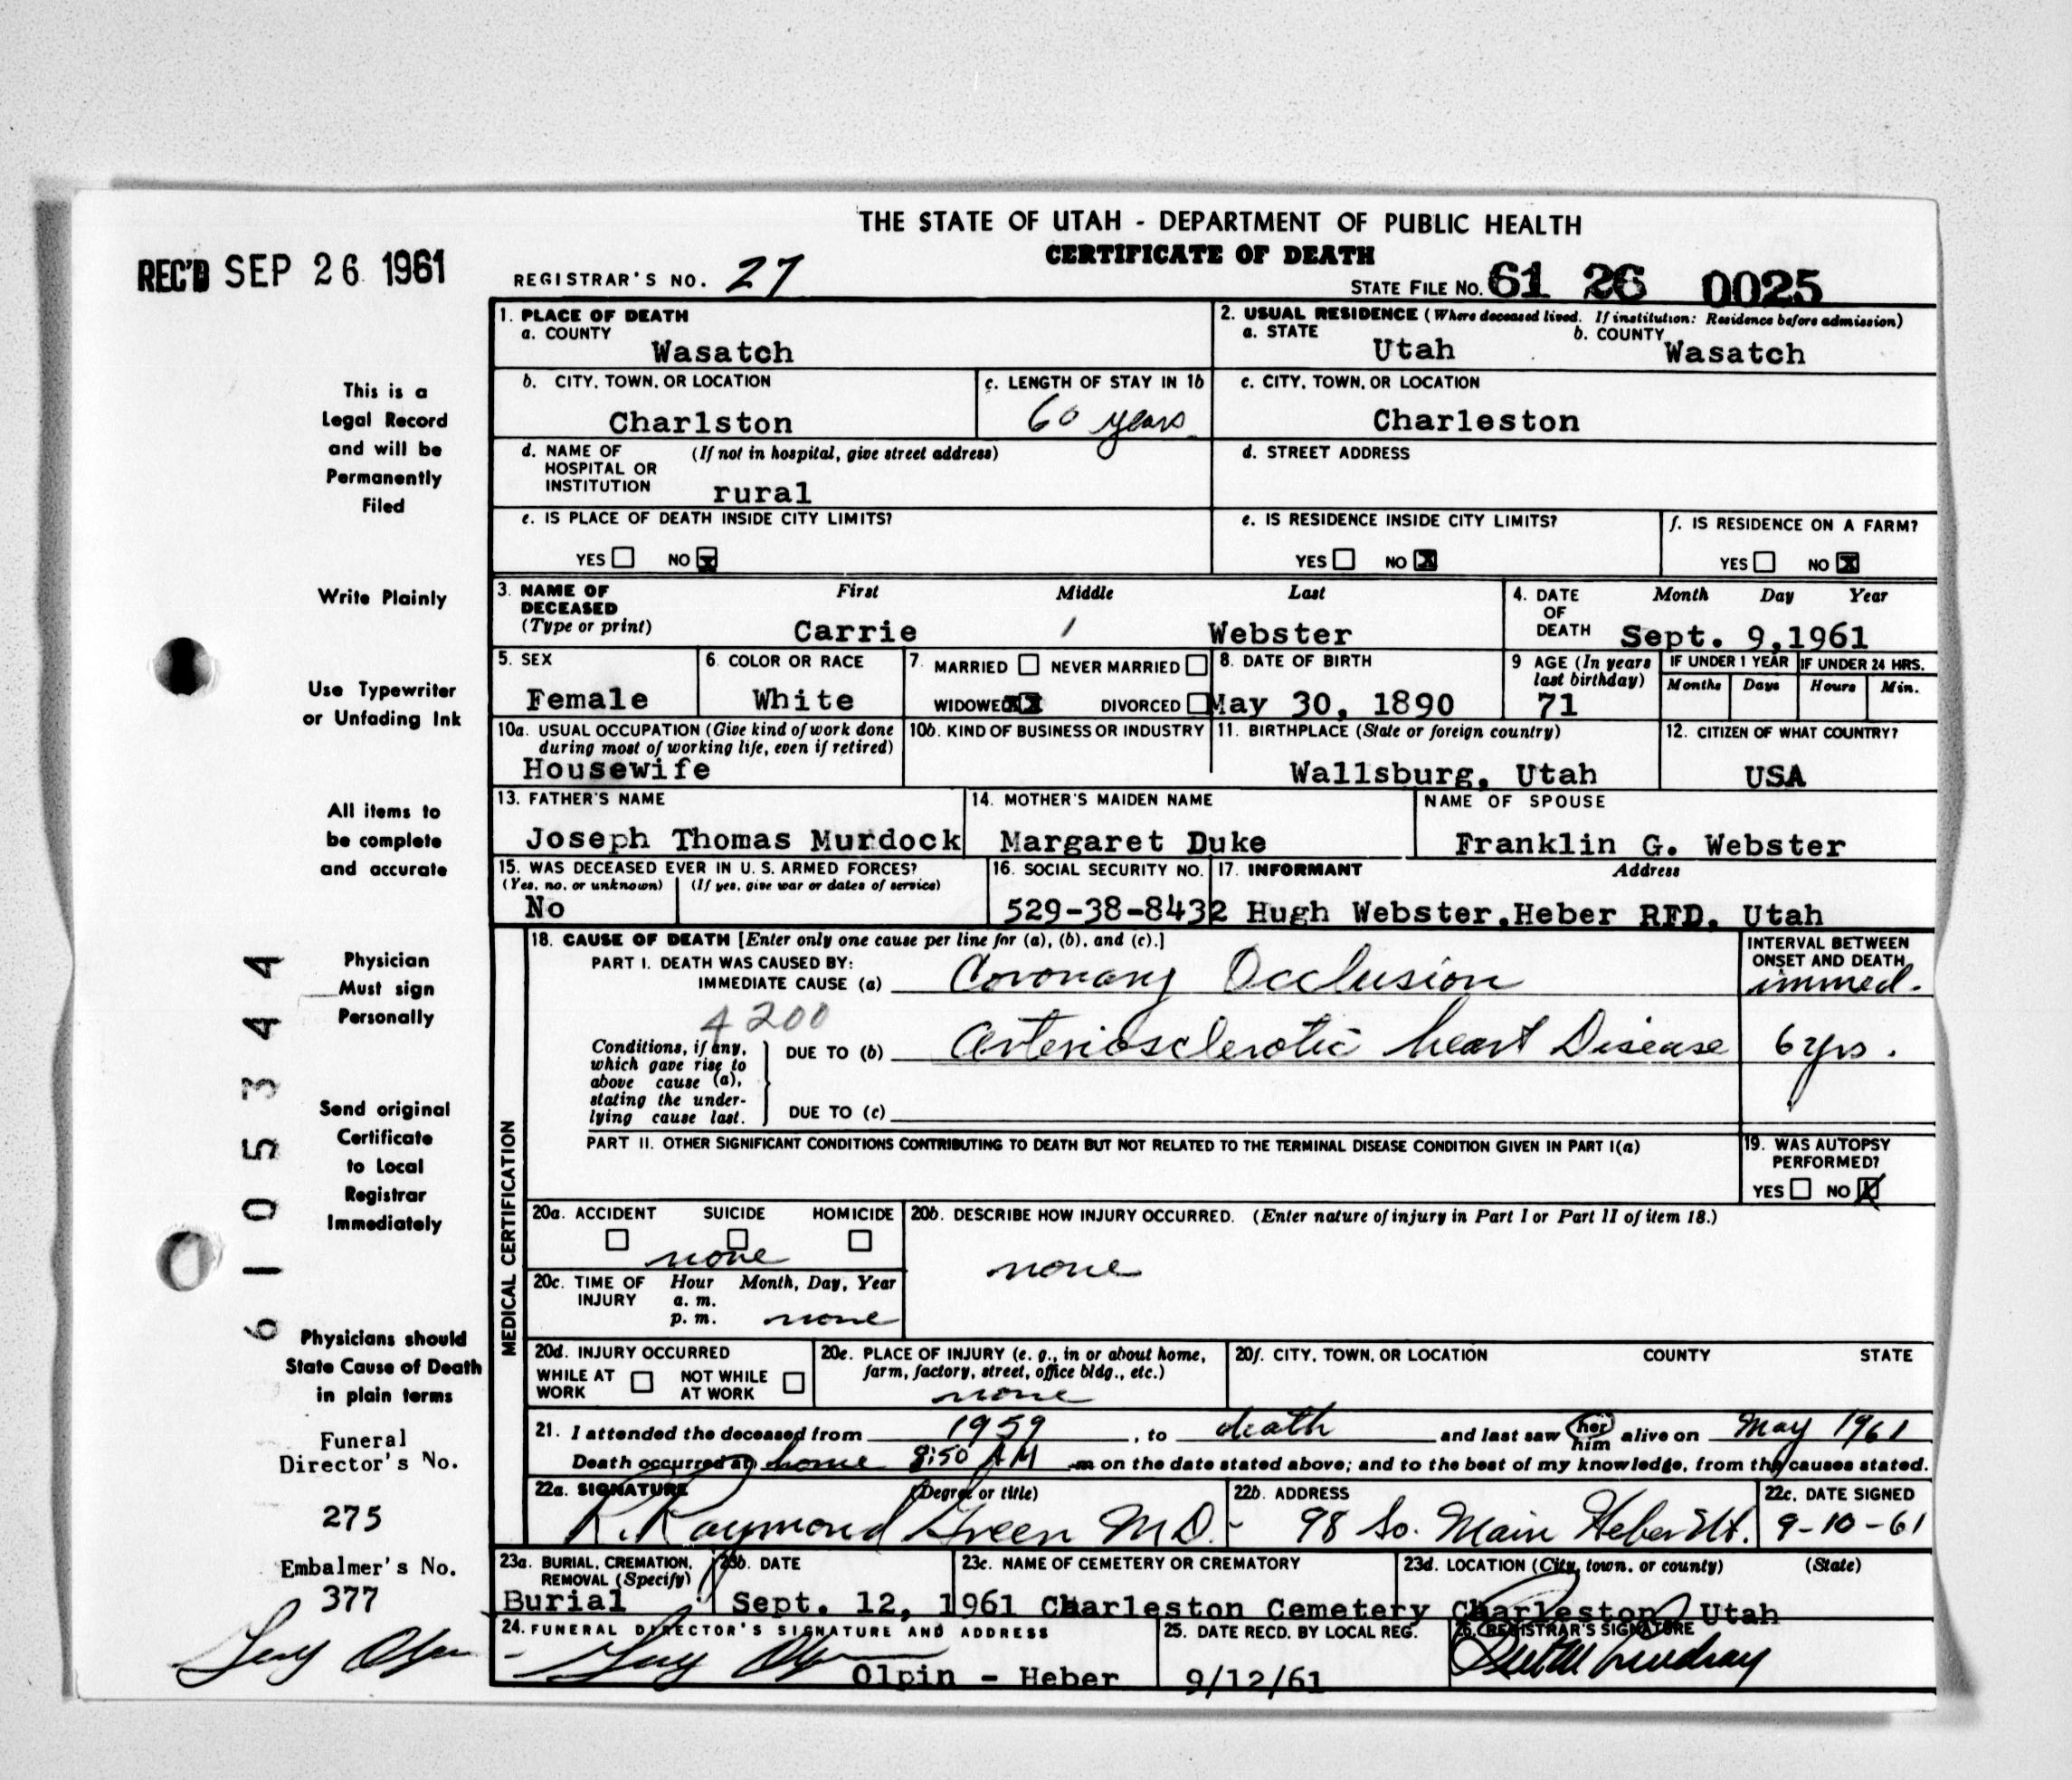 THE STATE OF UTAH - DEPARTMENT OF PUBLIC HEALTH
CERTIFICATE OF DEATH
REC'D SEP 26 1961
REGISTRAR'S NO. 27
STATE FILE NO. 61 26 0025
1. PLACE OF DEATH
a. COUNTY
Wasatch
2. USUAL RESIDENCE (Where deceased lived. If institution: Residence before admission)
a. STATE Utah b. COUNTY Wasatch
b. CITY, TOWN, OR LOCATION
Charlston
c. LENGTH OF STAY IN 1b
60 years
c. CITY, TOWN, OR LOCATION
Charleston
d. NAME OF HOSPITAL OR INSTITUTION (If not in hospital, give street address)
rural
d. STREET ADDRESS
e. IS PLACE OF DEATH INSIDE CITY LIMITS?
YES NO X
e. IS RESIDENCE INSIDE CITY LIMITS?
YES NO X
f. IS RESIDENCE ON A FARM?
YES NO X
3. NAME OF DECEASED (Type or print)
First Middle Last
Carrie / Webster
4. DATE OF DEATH Month Day Year
Sept. 9,1961
5. SEX
Female
6. COLOR OR RACE
White
7. MARRIED NEVER MARRIED
WIDOWED XX DIVORCED
8. DATE OF BIRTH
May 30, 1890
9 AGE (In years last birthday)
71
IF UNDER 1 YEAR
Months Days
IF UNDER 24 HRS.
Hours Min.
10a. USUAL OCCUPATION (Give kind of work done during most of working life, even if retired)
Housewife
10b. KIND OF BUSINESS OR INDUSTRY
11. BIRTHPLACE (State or foreign country)
Wallsburg, Utah
12. CITIZEN OF WHAT COUNTRY?
USA
13. FATHER'S NAME
Joseph Thomas Murdock
14. MOTHER'S MAIDEN NAME
Margaret Duke
NAME OF SPOUSE
Franklin G. Webster
15. WAS DECEASED EVER IN U. S. ARMED FORCES?
(Yes, no, or unknown) (If yes, give war or dates of service)
No
16. SOCIAL SECURITY NO.
529-38-8432
17. INFORMANT Address
Hugh Webster,Heber RFD, Utah
MEDICAL CERTIFICATION
18. CAUSE OF DEATH [Enter only one cause per line for (a), (b), and (c).]
PART I. DEATH WAS CAUSED BY:
IMMEDIATE CAUSE (a) Coronary Occlusion
INTERVAL BETWEEN ONSET AND DEATH
immed.
4200
Conditions, if any, which gave rise to above cause (a), stating the underlying cause last.
DUE TO (b) Arteriosclerotic heart Disease 6 yrs.
DUE TO (c)
PART II. OTHER SIGNIFICANT CONDITIONS CONTRIBUTING TO DEATH BUT NOT RELATED TO THE TERMINAL DISEASE CONDITION GIVEN IN PART I(a)
19. WAS AUTOPSY PERFORMED?
YES NO X
20a. ACCIDENT SUICIDE HOMICIDE
none
20b. DESCRIBE HOW INJURY OCCURRED. (Enter nature of injury in Part I or Part II of item 18.)
none
20c. TIME OF INJURY Hour Month, Day, Year
a. m.
p. m. none
20d. INJURY OCCURRED
WHILE AT WORK NOT WHILE AT WORK
20e. PLACE OF INJURY (e. g., in or about home, farm, factory, street, office bldg., etc.)
none
20f. CITY, TOWN, OR LOCATION COUNTY STATE
21. I attended the deceased from 1959, to death and last saw her him alive on May 1961
Death occurred at home 8:50 AM m on the date stated above; and to the best of my knowledge, from the causes stated.
22a. SIGNATURE (Degree or title)
R. Raymond Green M.D.
22b. ADDRESS
98 So. Main Heber Ut.
22c. DATE SIGNED
9-10-61
23a. BURIAL, CREMATION, REMOVAL (Specify)
Burial
23b. DATE
Sept. 12, 1961
23c. NAME OF CEMETERY OR CREMATORY
Charleston Cemetery
23d. LOCATION (City, town, or county) (State)
Charleston, Utah
24. FUNERAL DIRECTOR'S SIGNATURE AND ADDRESS
Olpin - Heber
25. DATE RECD. BY LOCAL REG.
9/12/61
26. REGISTRAR'S SIGNATURE
This is a
Legal Record
and will be
Permanently
Filed
Write Plainly
Use Typewriter
or Unfading Ink
All items to
be complete
and accurate
Physician
Must sign
Personally
Send original
Certificate
to Local
Registrar
Immediately
Physicians should
State Cause of Death
in plain terms
Funeral
Director's No.
275
Embalmer's No.
377
6105344